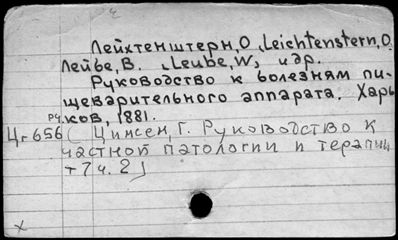 Лейхтенштерн, О, Leichtenstern, O.
Лейбе, В. Leube, W, и др.
Руководство к болезням пи-
щеварительного аппарата. Харь
ков, 1881.
Цг 656 (Цимсен, Г. Руководство к
частной патологии и терапии
т 7 ч. 2)
x